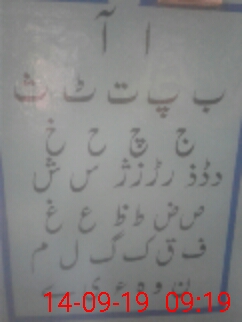 ا آ
ب پ ت ٹ ث
ج چ ح خ
د ڈ ذ ر ڑ ز ژ س ش
ص ض ط ظ ع غ
ف ق ک گ ل م
ن و ہ ء ی ے
14-09-19 09:19